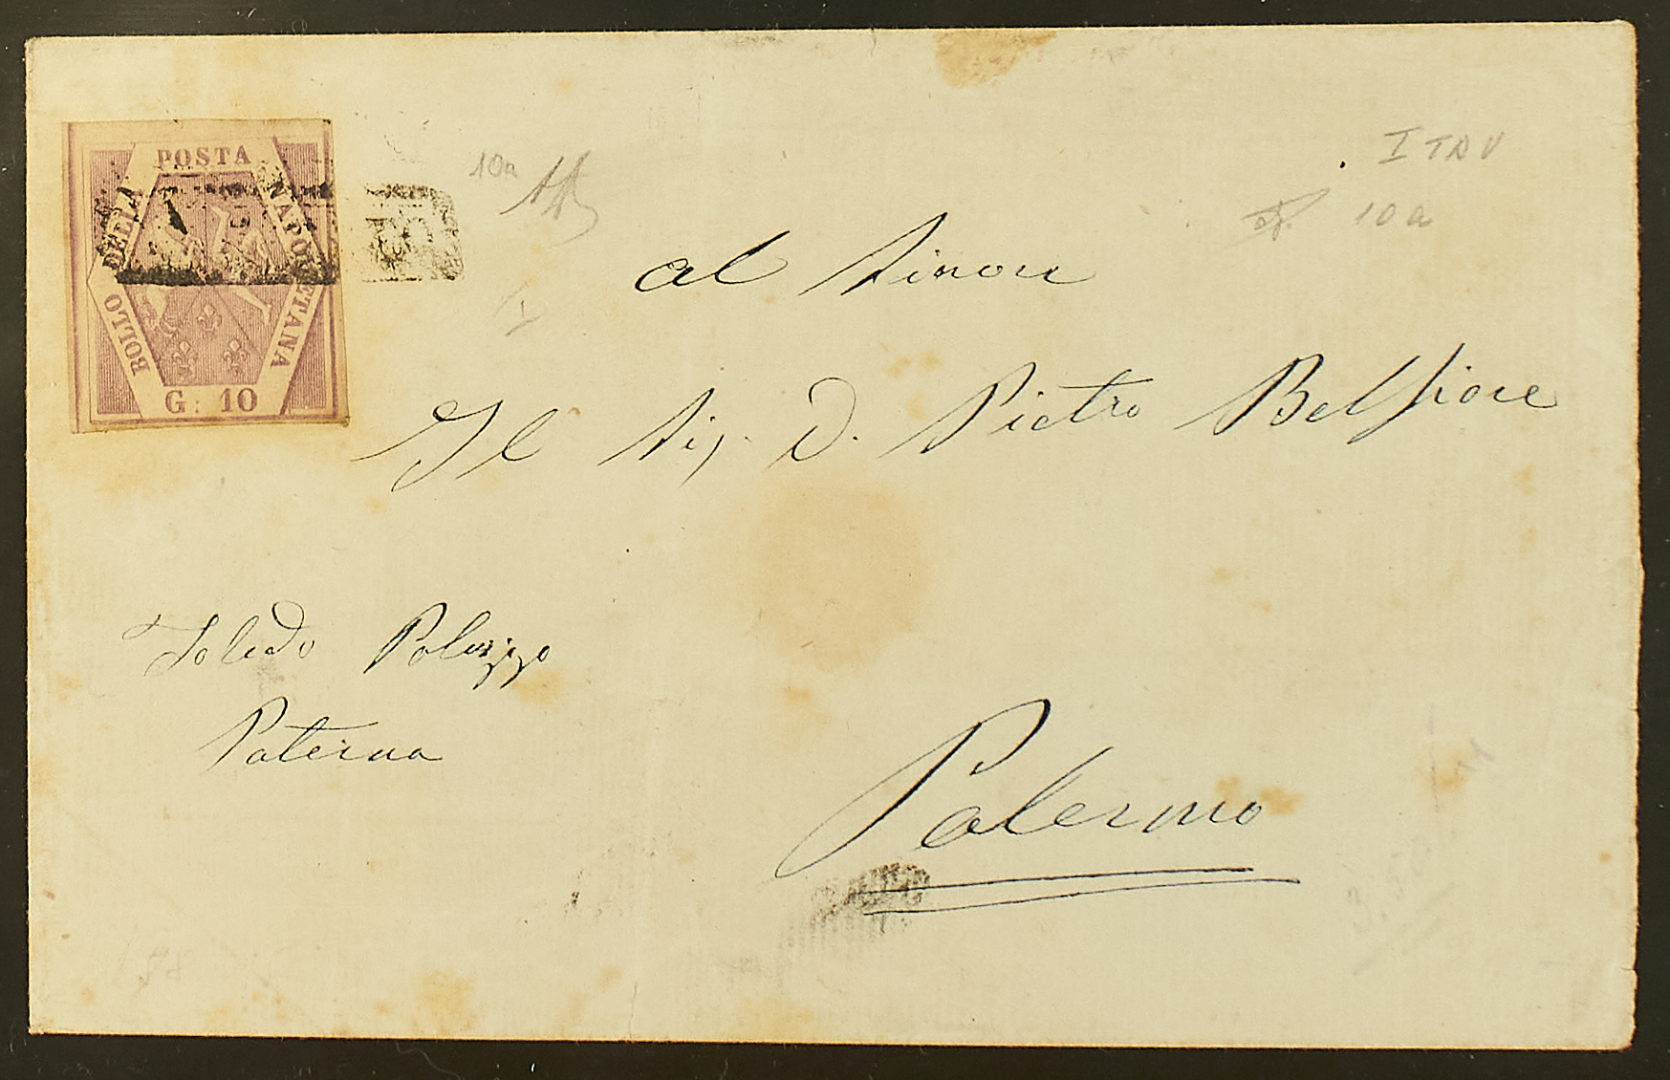 POSTA
NAPOLETANA
BOLLO DELLA
G: 10
10a
I TAV
10 a
al Sinore
Il Sig. D. Pietro Belfiore
Toledo Palazzo
Paterna
Palermo